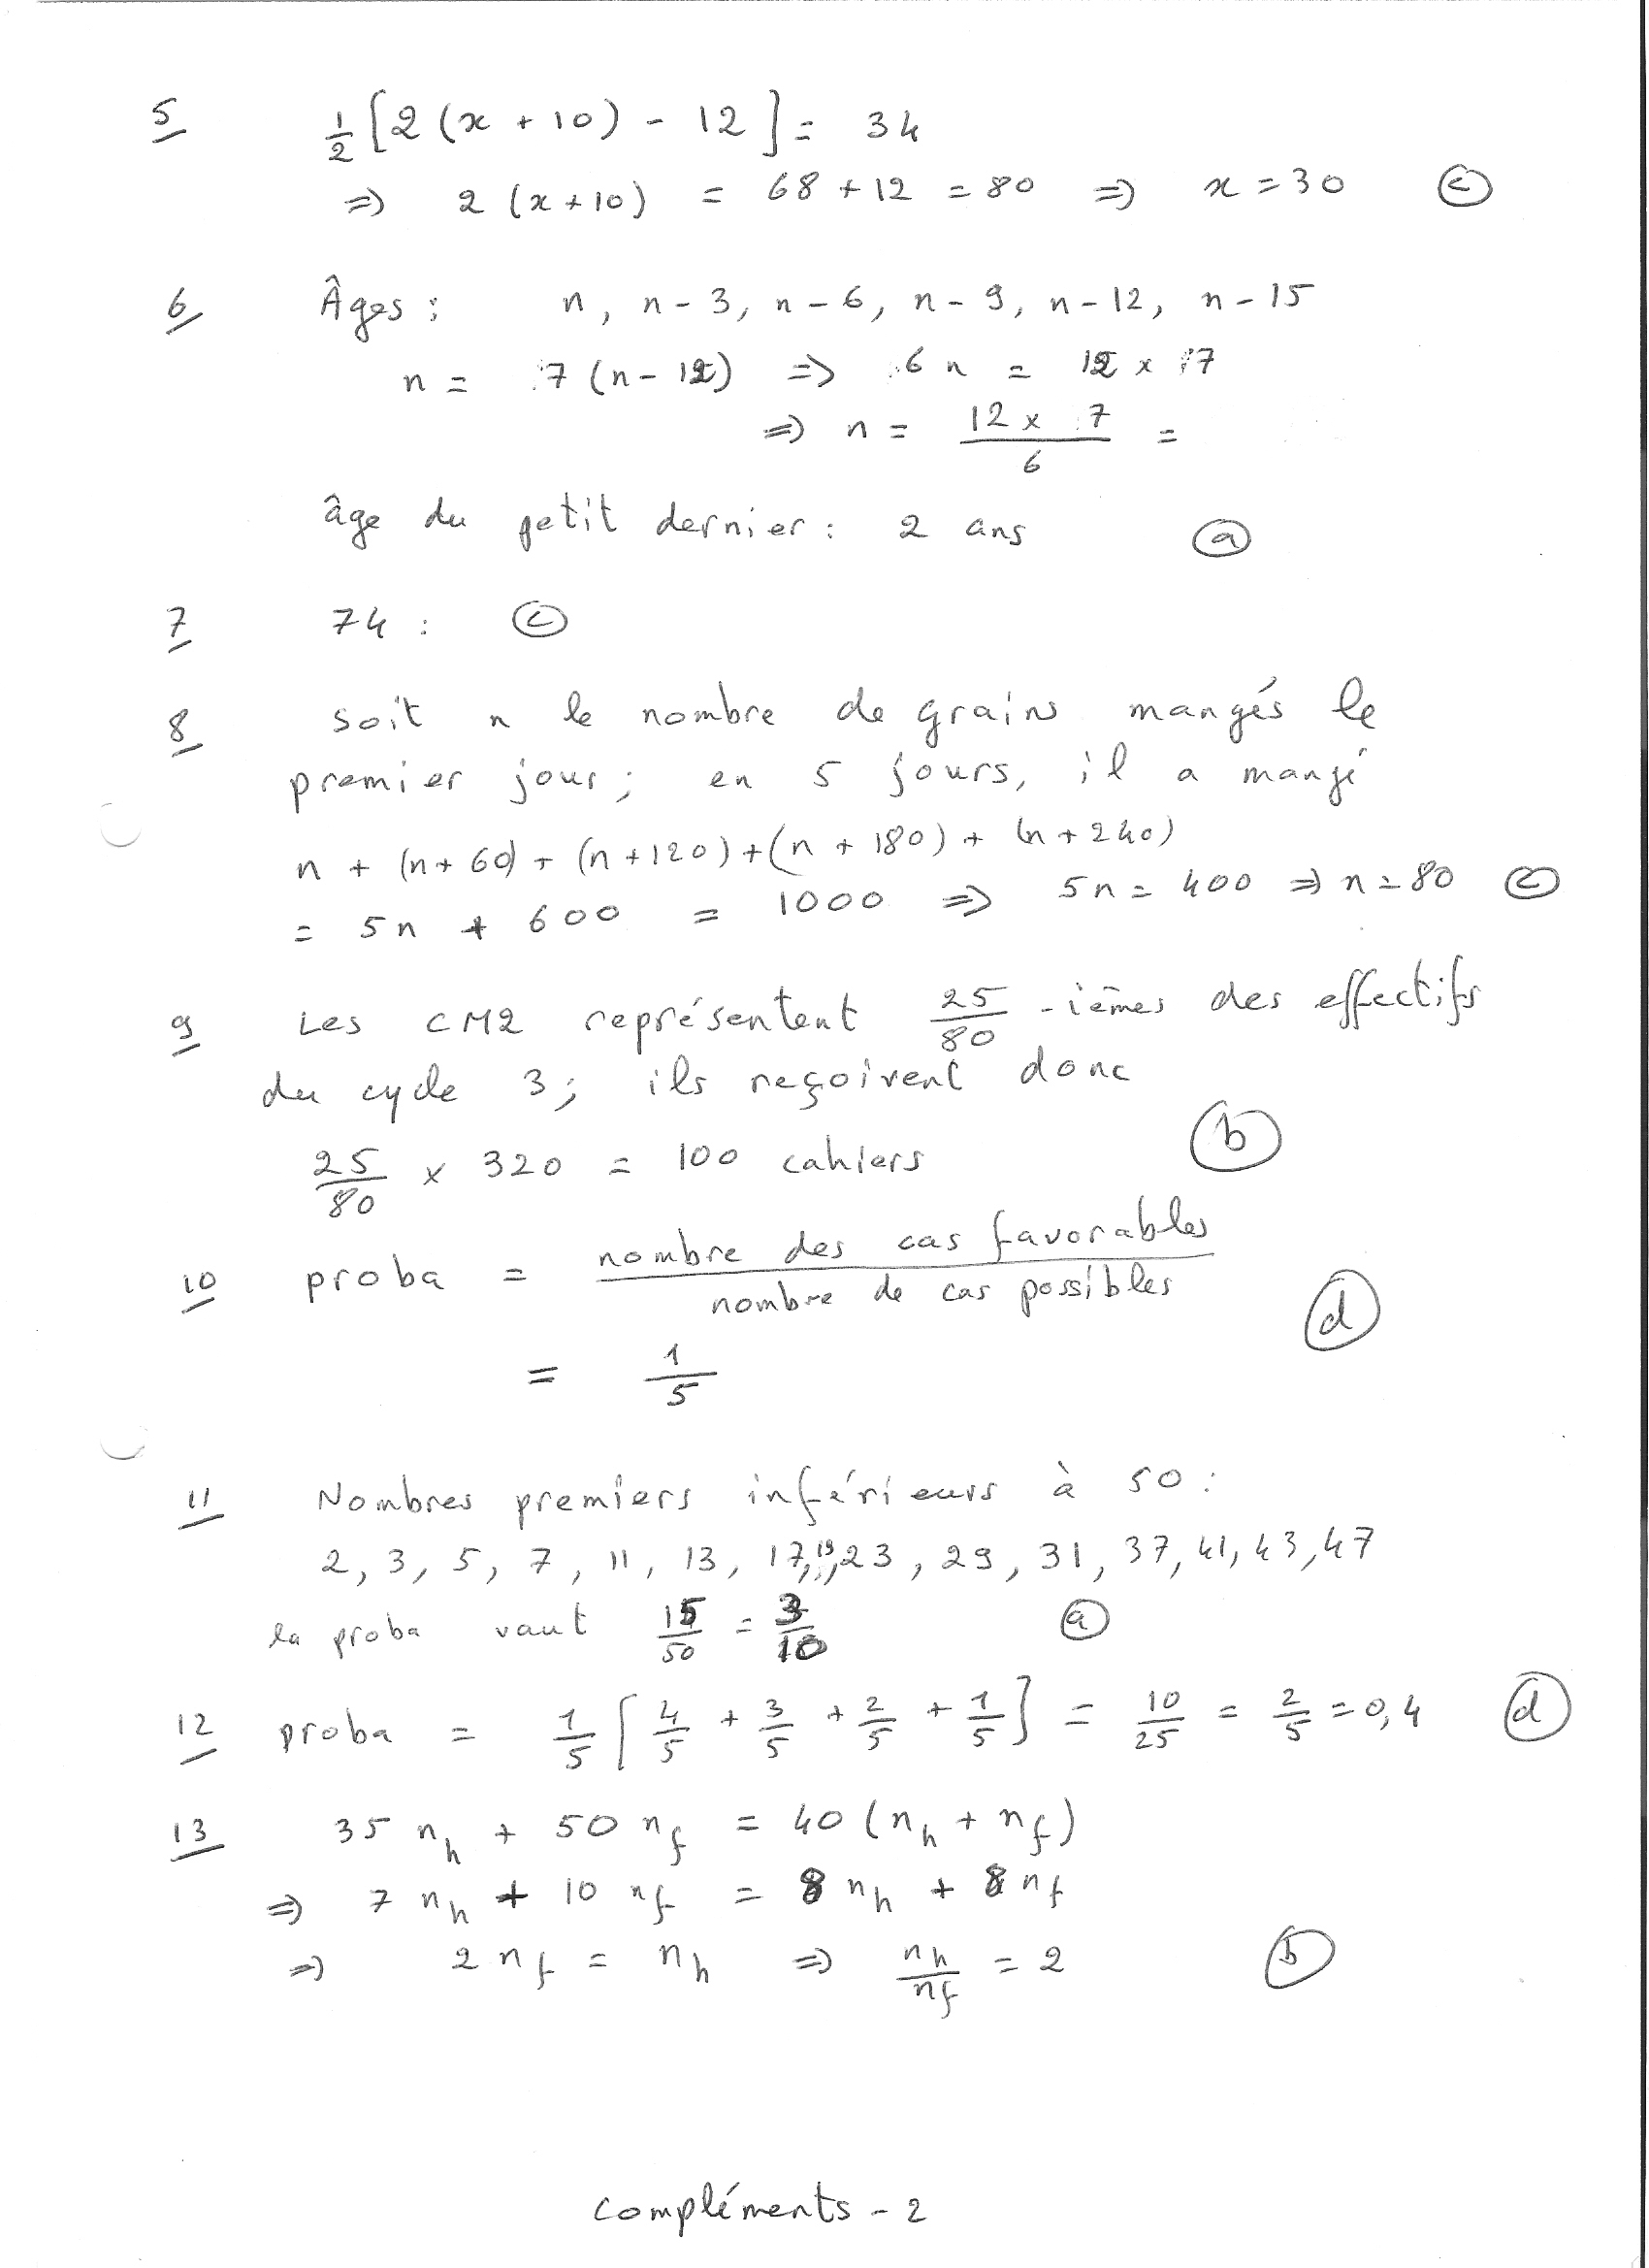 5 1/2 [2 (x + 10) - 12] = 34
=> 2 (x + 10) = 68 + 12 = 80 => x = 30 (c)
6 Âges : n, n - 3, n - 6, n - 9, n - 12, n - 15
n = 7 (n - 12) => 6 n = 12 x 7
=> n = 12 x 7 / 6 =
âge du petit dernier : 2 ans (a)
7 74 : (c)
8 soit n le nombre de grains mangés le
premier jour ; en 5 jours, il a mangé
n + (n + 60) + (n + 120) + (n + 180) + (n + 240)
= 5n + 600 = 1000 => 5n = 400 => n = 80 (c)
9 Les CM2 représentent 25/80 -ièmes des effectifs
du cycle 3 ; ils reçoivent donc
25/80 x 320 = 100 cahiers (b)
10 proba = nombre des cas favorables / nombre de cas possibles (d)
= 1/5
11 Nombres premiers inférieurs à 50 :
2, 3, 5, 7, 11, 13, 17, 19, 23, 29, 31, 37, 41, 43, 47
la proba vaut 15/50 = 3/10 (a)
12 proba = 1/5 [4/5 + 3/5 + 2/5 + 1/5] = 10/25 = 2/5 = 0,4 (d)
13 35 n_h + 50 n_f = 40 (n_h + n_f)
=> 7 n_h + 10 n_f = 8 n_h + 8 n_f
=> 2 n_f = n_h => n_h/n_f = 2 (b)
compléments - 2